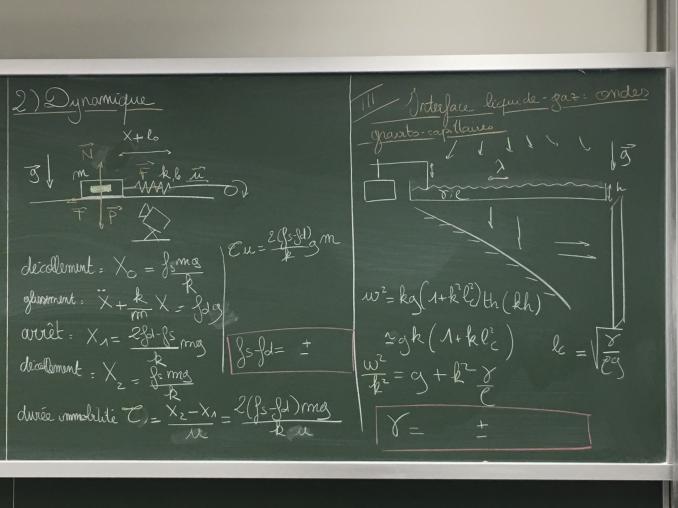 2) Dynamique
X+l₀
N⃗
g⃗
m
F⃗ k l₀ u⃗
T⃗ P⃗
décollement : X₀ = fsmg/k
glissement : Ẍ + k/m X = fdg
arrêt : X₁ = 2fd-fs/k mg
décollement : X₂ = fsmg/k
durée immobilité τ = X₂-X₁/u = 2(fs-fd)mg/k u
τu = 2(fs-fd)/k g m
fs-fd = ±
III Interface liquide-gaz : ondes
gravito-capillaires
g⃗
λ
γ, ρ
h
ω² = kg(1+k²lc²)th(kh)
≃ gk(1+klc²)
lc = √γ/ρg
ω²/k² = g + k² γ/ρ
γ = ±